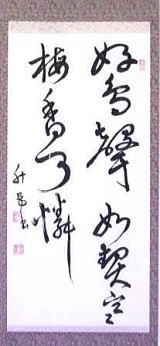 好鳥聲如契
梅香可憐